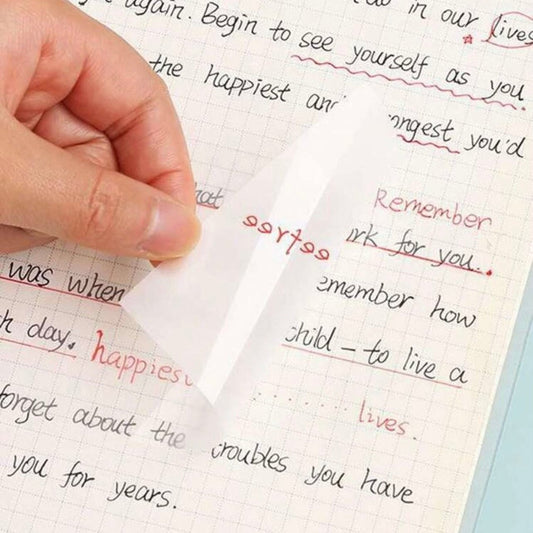 again. Begin to see yourself as you
in our lives
the happiest and ongest you'd
Remember
rk for you.
was when
emember how
h day. happiest child - to live a
lives.
forget about the troubles you have
you for years.